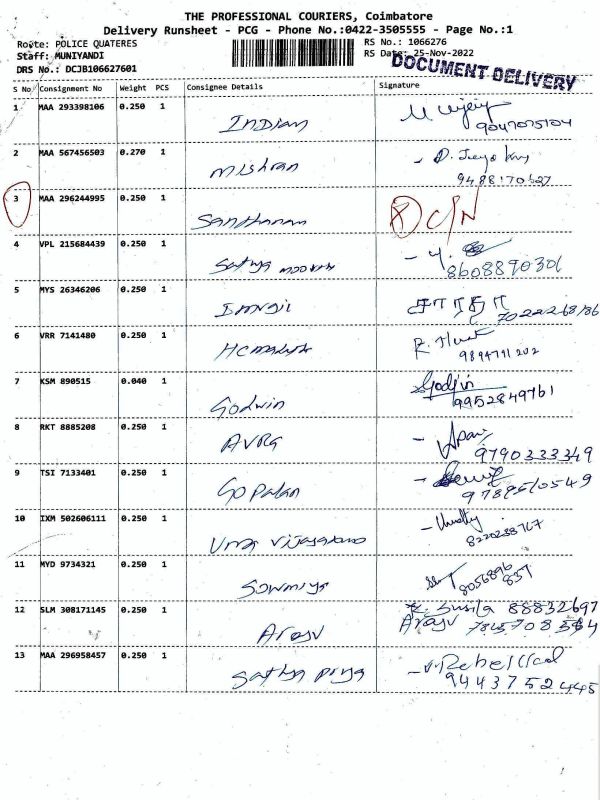 THE PROFESSIONAL COURIERS, Coimbatore
Delivery Runsheet - PCG - Phone No.:0422-3505555 - Page No.:1
Route: POLICE QUATERES RS No.: 1066276
Staff: MUNIYANDI RS Date: 25-Nov-2022
DRS No.: DCJB106627601 DOCUMENT DELIVERY
S No Consignment No Weight PCS Consignee Details Signature
1 MAA 293398106 0.250 1
Indian
9047075704
2 MAA 567456503 0.270 1
Mishran
9488170627
3 MAA 296244995 0.250 1
Santhanam C/N
4 VPL 215684439 0.250 1
Sathya moorthy
8608890306
5 MYS 26346206 0.250 1
Ismail
6 VRR 7141480 0.250 1
Hemalatha
9894791202
7 KSM 890515 0.040 1
Godwin Godjin
9952849761
8 RKT 8885208 0.250 1
AVRG
9790333349
9 TSI 7133401 0.250 1
Gopalan
9789510549
10 IXM 502606111 0.250 1
Uma Vijayakumar
8220238767
11 MYD 9734321 0.250 1
Sowmiya
8056896
837
12 SLM 308171145 0.250 1
K. Susila 88832697
Arasu Arasu 7845708364
13 MAA 296958457 0.250 1
Sathya Priya
9443752445